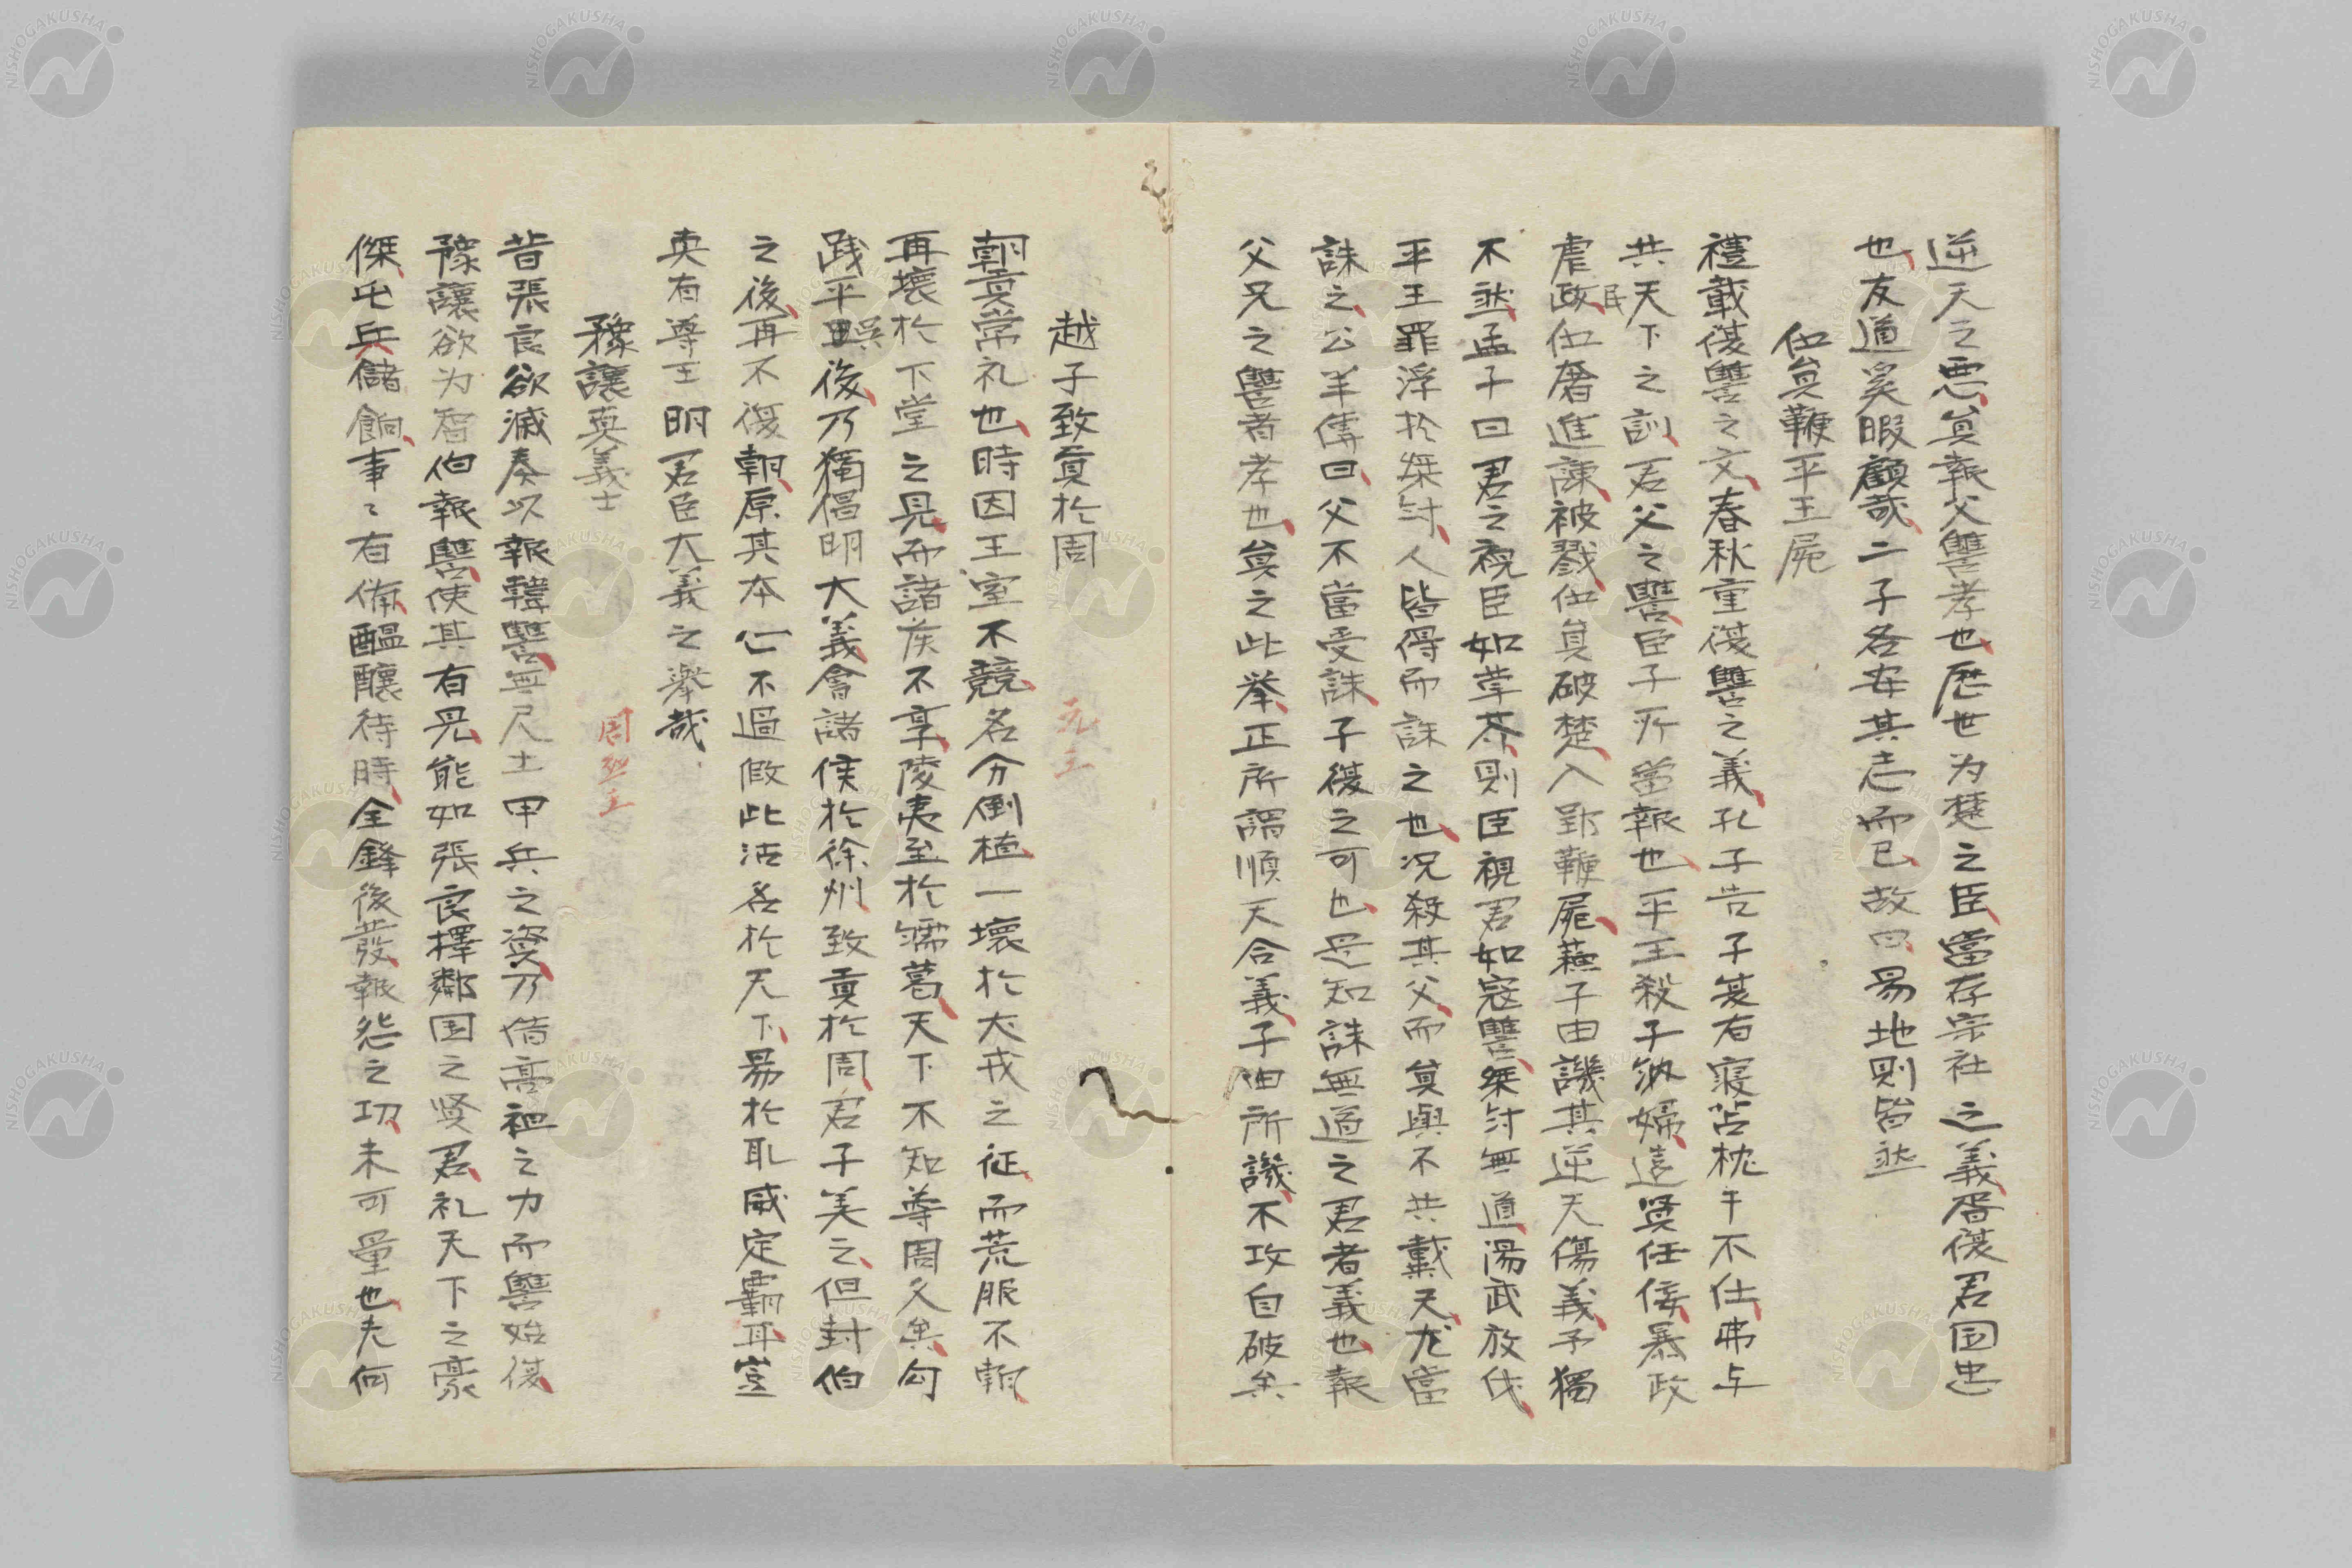 逆天之悪員報父讐孝也歴世为楚之臣當存宗社之義胥復君国忠
也友道奚暇顧哉二子各安其志而已故曰易地則皆然
伍員鞭平王屍
禮載復讐之文春秋重復讐之義孔子告子夏有寢苫枕干不仕弗与
共天下之訓君父之讐臣子所當報也平王殺子納婦遠賢任佞暴政
虐民政伍奢進諫被戮伍員破楚入郢鞭屍蘓子由譏其逆天傷義予獨
不然孟子曰君之視臣如草芥則臣視君如寇讐桀紂無道湯武放伐
平王罪浮於桀紂人皆得而誅之也况殺其父而員與不共戴天尤當
誅之公羊傳曰父不當受誅子復之可也是知誅無道之君者義也報
父兄之讐者孝也員之此挙正所謂順天合義子由所譏不攻自破矣
越子致貢於周
元王
朝貢常礼也時因王室不競名分倒植一壊於犬戎之征而荒服不朝
再壊於下堂之見而諸侯不享陵夷至於繻葛天下不知尊周久矣勾
践平吳後乃獨倡明大義會諸侯於徐州致貢於周君子美之但封伯
之後再不復朝原其本心不過假此沽名於天下易於取威定覇耳豈
真有尊王明君臣大義之挙哉
豫讓真義士
周
昔張良欲滅秦以報韓讐無尺土甲兵之資乃借高祖之力而讐始復
豫讓欲为智伯報讐使其有見能如張良擇鄰国之賢君礼天下之豪
傑屯兵儲餉事〻有備醞釀待時全鋒後發報怨之功未可量也夫何